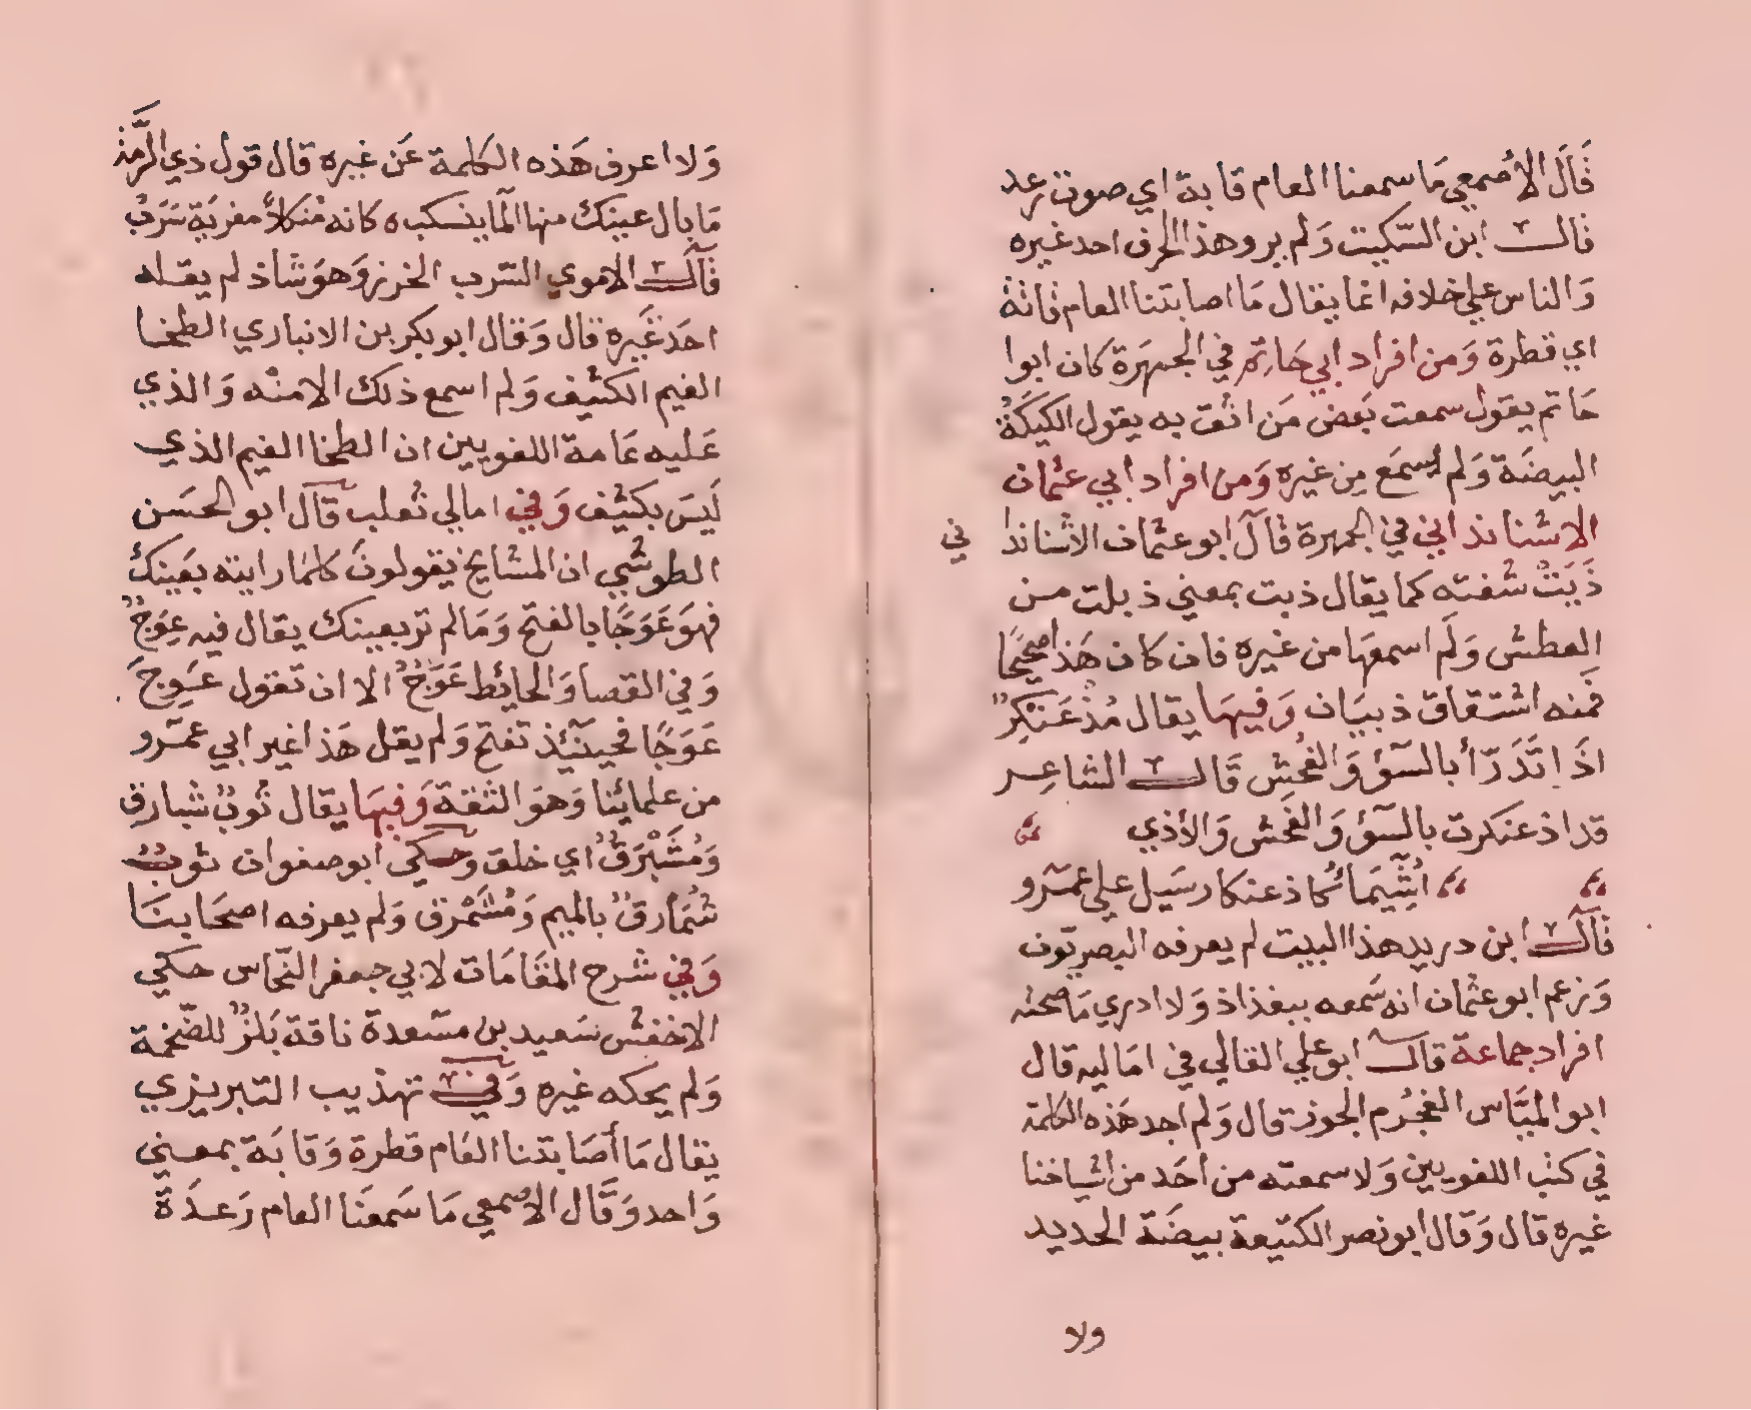 قَالَ الأصمعي مَا سمعنا العام قابة اي صوت رعد
قالــ ابن السّكيت وَلم يرو هذا الحرف احد غيره
وَالناس علي خلافه انما يقال مَا اصابتنا العام قابة
اي قطرة وَمن افراد ابي حَاتم في الجمهَرة كان ابوا
حَاتم يقول سمعت بَعض مَن اثق به يقول الكيكَةُ
البيضَة وَلم يسمَع مِن غيره وَمن افراد ابي عثمان
الاشنانذاني في الجمهرة قال ابو عثمان الاشناندا ني
ذَبَتْ شفته كما يقال ذبت بمعني ذبلت من
العطش وَلَم اسمعهَا من غيره فان كان هَذا صحيحًا
فمنه اشتقاق ذبيَان وَفيهَا يقال مُذْعَنْكِرٌ
اذَا تَدَرّأ بالسّوْء وَالفحُشِ قَالــ الشاعِر
قد اذعنكرت بالسّوْء وَالفحَش وَالأذي
اُثَيمَائُكا ذعنكار سَيل علي عمرو
قَالــ ابن دريد هذا البيت لم يعرفه البصريّون
وَزعم ابو عثمان انه سَمعه ببغذاذ وَلا ادري مَا صحته
افراد جماعة قالــ ابو علي القالي في امَاليه قال
ابو الميَّاس الفجُرم الجوز قال وَلم اجد هَذه الكلمة
في كتب اللغويين وَلا سمعته من أحَد من أشياخنا
غيره قال وَقال ابو نصر الكتيعة بيضَة الحديد
ولا
وَلا اعرف هَذه الكلمة عَن غيره قال قول ذي الرَّمة
مَا بال عينك منها الما ينسكب ه كانه مْنكلاً مفريَة سَرَبْ
قَالــ الاموي السّرب الخرز وَهوَ شاذ لم يقله
احَد غَيره قال وَقال ابو بكر بن الانباري الطخا
الغيم الكثيف وَلم اسمع ذلك الا منْه وَالذي
عَليه عَامة اللغويين ان الطخا الغيم الذي
لَيسَ بكثيف وَفي امالي ثعلب قال ابو الحسَن
الطوسي ان المشايخ يقولونَ كلمَا رايته بعَينكَ
فهوَ عَوَجًا بالفتح وَمَا لم تر بعينك يقال فيه عِوَجٌ
وَفي القصا وَالحايط عَوَجٌ الا ان تقول عَوِجَ
عَوَجًا فحينَئِذ تفتح وَلم يقل هَذا غير ابي عمرو
من علمائنا وَهوَ الثقة وَفيهَا يقال ثوبٌ شبارق
وَمُشَبْرَقٌ اي خلق وحكي ابو صفوان ثوبٌ
شُمَارقٌ بالميم وَمُشَمْرق وَلم يعرفه اصحَابنَا
وَفي شرح المقَامَات لابي جعفر النحّاس حكي
الاخفش سَعيد بن مسّعدة ناقة بَلزٌ للضّخمة
وَلم يحكه غيره وَفي تهذيب التبريزي
يقال مَا أصَابتنا العَام قطرة وَقابَة بمعني
وَاحد وَقَّال الاصمعي مَا سَمعنَا العام رَعدَة